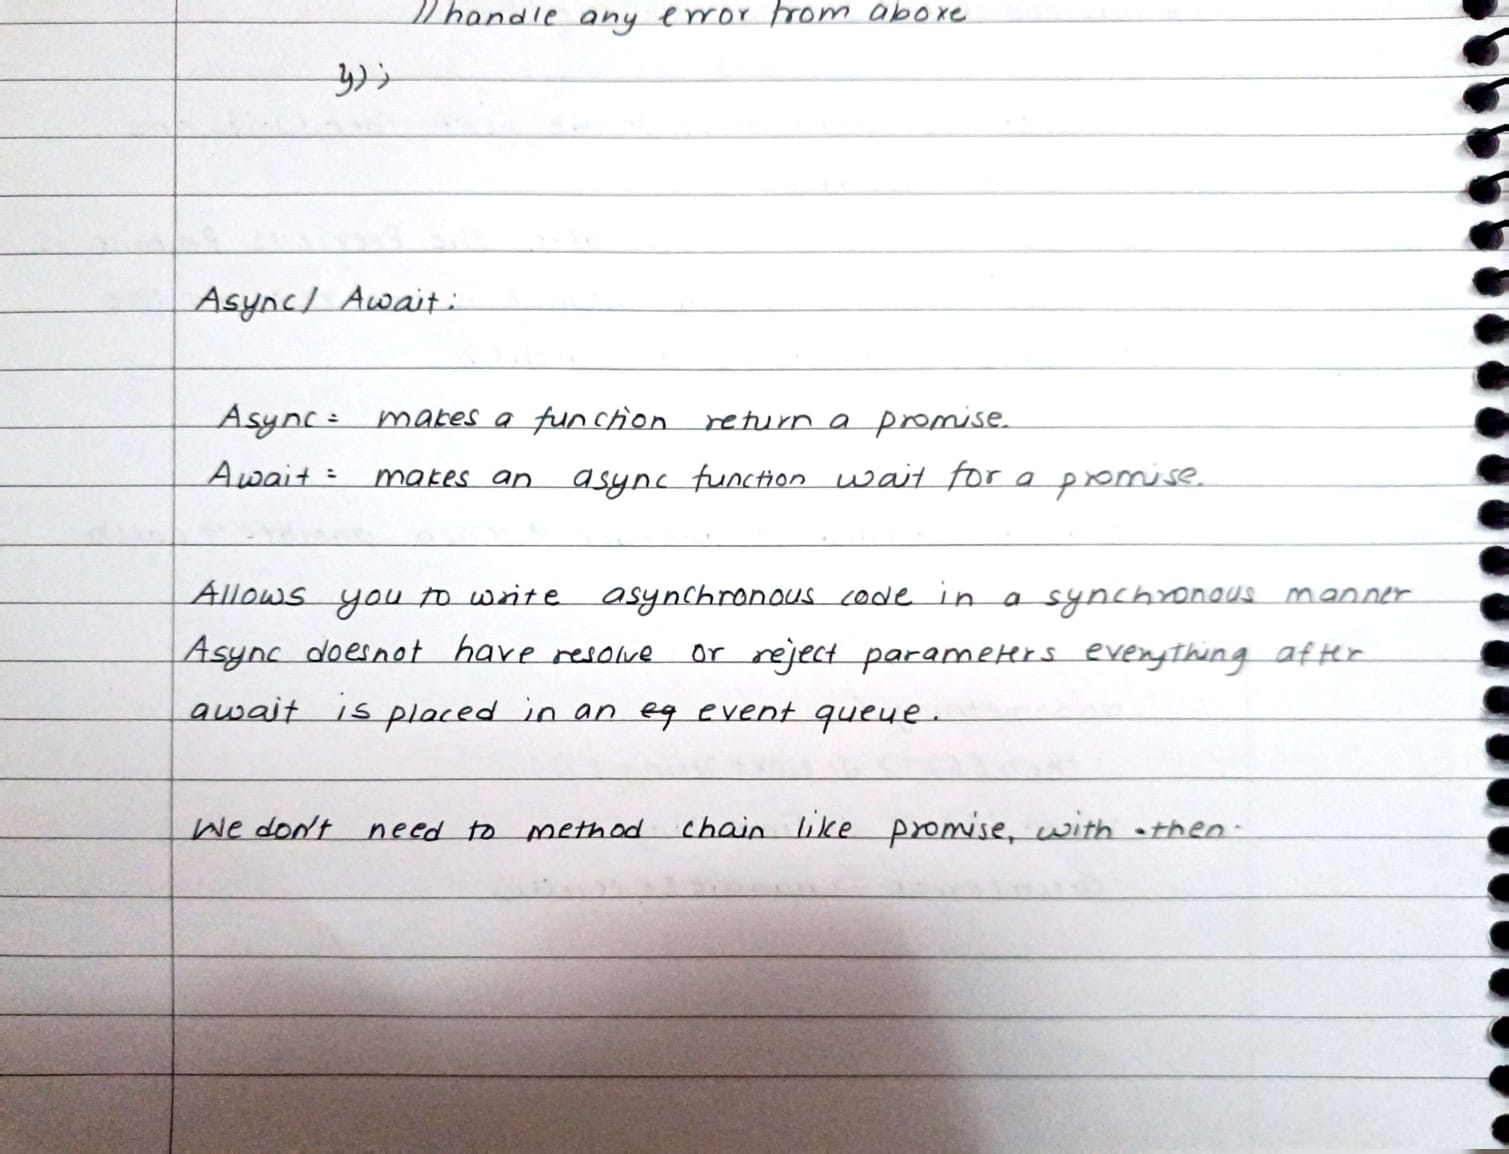 //handle any error from above
});
Async/ Await:
Async = makes a function return a promise.
Await = makes an async function wait for a promise.
Allows you to write asynchronous code in a synchronous manner
Async doesnot have resolve or reject parameters everything after
await is placed in an eq event queue.
We don't need to method chain like promise, with .then.